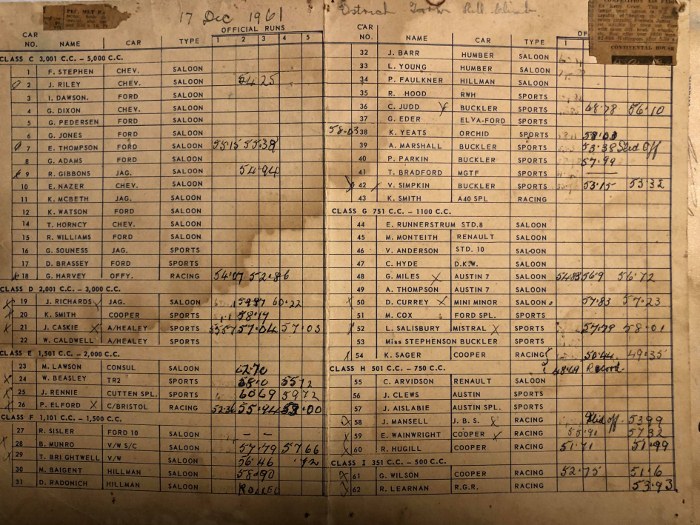 17 Dec 1961
OFFICIAL RUNS
CAR NO. NAME CAR TYPE 1 2 3 4 5
CLASS C 3,001 C.C. - 5,000 C.C.
1 F. STEPHEN CHEV. SALOON
2 J. RILEY CHEV. SALOON 54.25
3 I. DAWSON. FORD SALOON
4 G. DIXON CHEV. SALOON
5 G. PEDERSEN FORD SALOON
6 G. JONES FORD SALOON
7 E. THOMPSON FORD SALOON 55.15 55.38
8 G. ADAMS FORD SALOON
9 R. GIBBONS JAG. SALOON 54.94
10 E. NAZER CHEV. SALOON
11 K. McBETH JAG. SALOON
12 K. WATSON FORD SALOON
14 T. HORNCY CHEV. SALOON
15 R. WILLIAMS FORD SALOON
16 G. SOUNESS JAG. SPORTS
17 D. BRASSEY FORD SPORTS
18 G. HARVEY OFFY. RACING 54.07 52.86
CLASS D 2,001 C.C. - 3,000 C.C.
19 J. RICHARDS X JAG. SALOON 60.22
20 K. SMITH COOPER SPORTS 58.19
21 J. CASKIE X A/HEALEY SPORTS 57.04 57.03
22 W. CALDWELL A/HEALEY SPORTS
CLASS E 1,501 C.C. - 2,000 C.C.
23 M. LAWSON CONSUL SALOON 62.70
24 W. BEASLEY TR2 SPORTS 58.0 55.12
25 J. RENNIE CUTTEN SPL. SPORTS 60.69 59.72
26 P. ELFORD X C/BRISTOL RACING 52.36 55.94 53.00
CLASS F 1,101 C.C. - 1,500 C.C.
27 R. SISLER FORD 10 SALOON - -
28 B. MUNRO V/W S/C SALOON 57.79 57.66
29 T. BRIGHTWELL V/W SALOON 56.46
30 M. BAIGENT HILLMAN SALOON 58.90
31 D. RADONICH HILLMAN SALOON ROLLED
CAR NO. NAME CAR TYPE
32 J. BARR HUMBER SALOON
33 L. YOUNG HUMBER SALOON
34 P. FAULKNER HILLMAN SALOON
35 R. HOOD RWH SPORTS
36 C. JUDD BUCKLER SPORTS 68.78 56.10
37 G. EDER ELVA-FORD SPORTS
58.03 38 K. YEATS ORCHID SPORTS 58.03
39 A. MARSHALL BUCKLER SPORTS 55.38 Slid Off
40 P. PARKIN BUCKLER SPORTS 57.99
41 T. BRADFORD MGTF SPORTS
42 V. SIMPKIN BUCKLER SPORTS 53.15 53.32
43 K. SMITH A40 SPL RACING
CLASS G 751 C.C. - 1100 C.C.
44 E. RUNNERSTRUM STD. 8 SALOON
45 M. MONTEITH RENAULT SALOON
46 V. ANDERSON STD. 10 SALOON
47 C. HYDE D.K.W. SALOON
48 G. MILES X AUSTIN 7 SALOON 56.9 56.72
49 A. THOMPSON AUSTIN 7 SALOON
50 D. CURREY X MINI MINOR SALOON 57.83 57.23
51 M. COX FORD SPL. SPORTS
52 L. SALISBURY MISTRAL X SPORTS 57.78 58.01
53 Miss STEPHENSON BUCKLER SPORTS
54 K. SAGER COOPER RACING 50.44 49.35
48.49 Record
CLASS H 501 C.C. - 750 C.C.
55 C. ARVIDSON RENAULT SALOON
56 J. CLEWS AUSTIN SPORTS
57 J. AISLABIE AUSTIN SPL. SPORTS
58 J. MANSELL J. B. S. X RACING Slid off 53.99
59 E. WAINWRIGHT COOPER X RACING 55.90 57.32
60 R. HUGILL COOPER RACING 51.71 51.99
CLASS I 351 C.C. - 500 C.C.
61 G. WILSON COOPER RACING 52.75 51.6
62 R. LEARNAN R.G.R. RACING 53.93